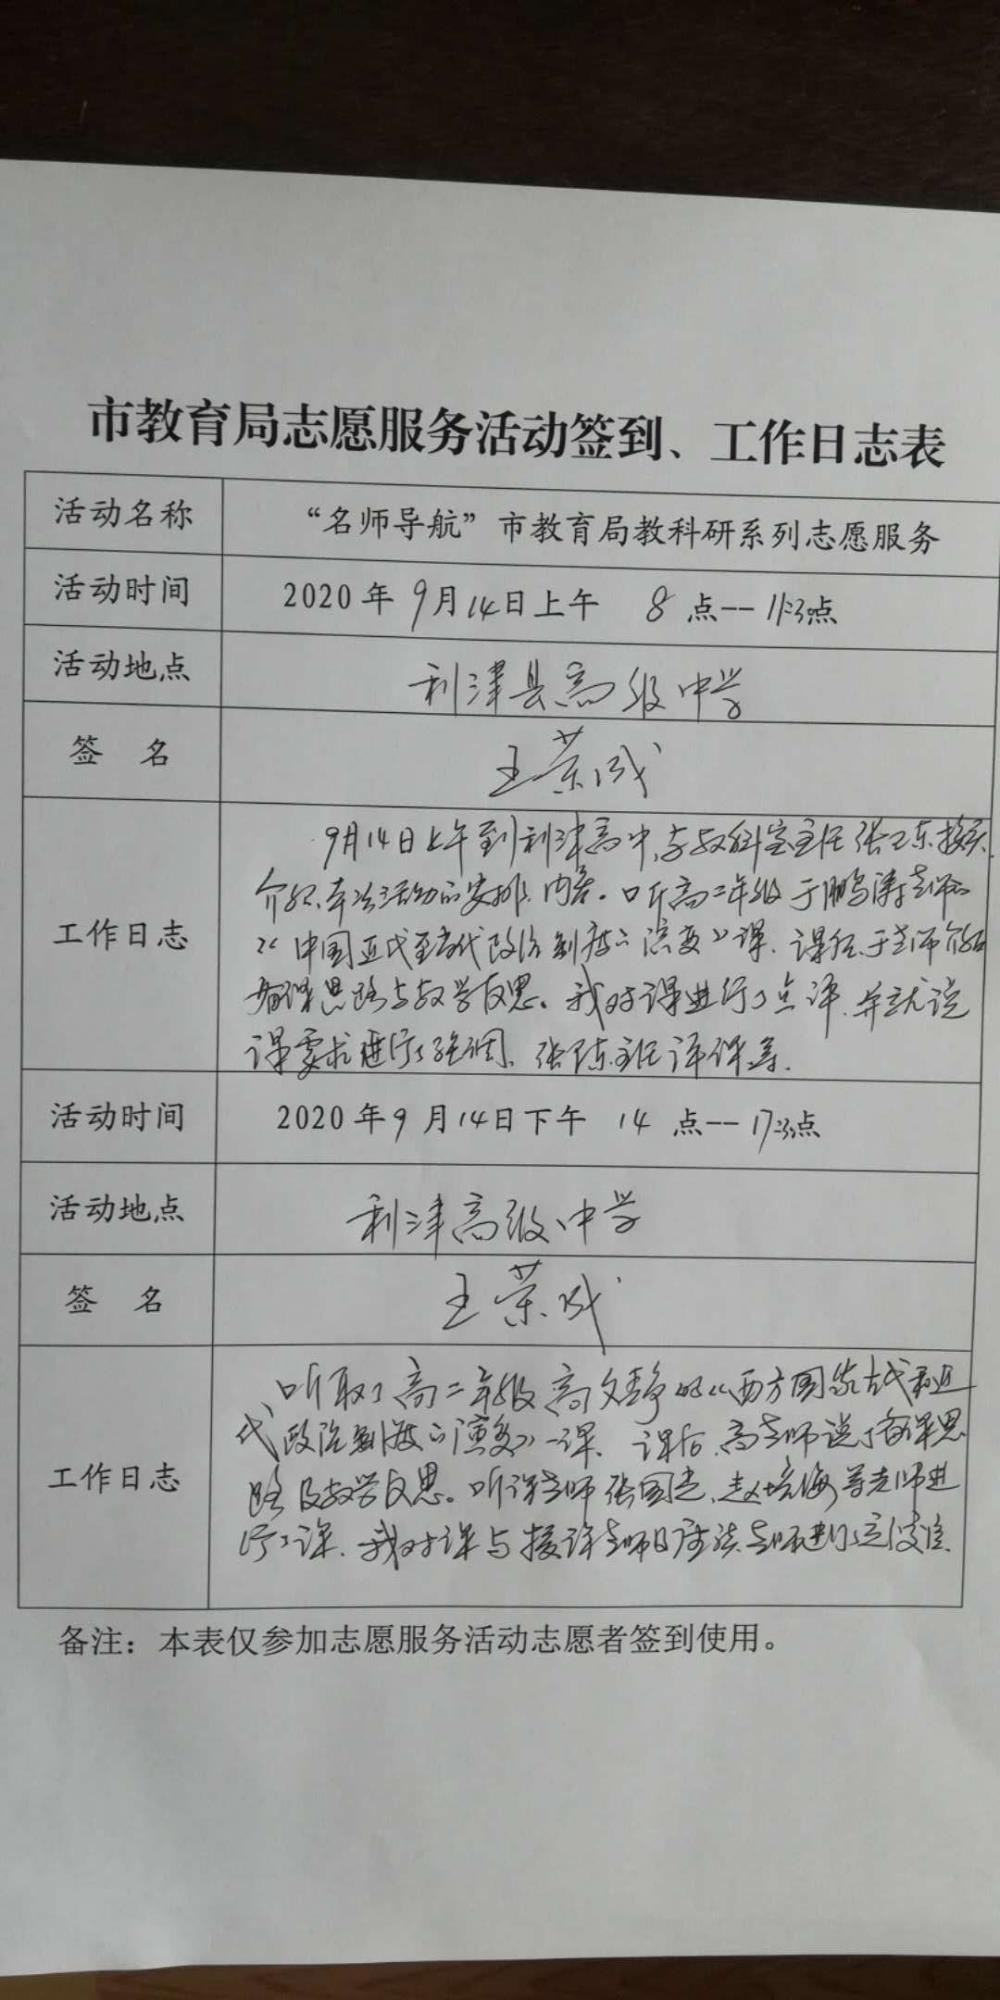 市教育局志愿服务活动签到、工作日志表
活动名称 “名师导航”市教育局教科研系列志愿服务
活动时间 2020年9月14日上午 8点--11:30点
活动地点 利津县高级中学
签 名 王荣成
9月14日上午到利津高中,与教科室主任张卫东接头,
介绍本次活动的安排、内容。听高二年级于鹏涛老师的
工作日志
《中国近代至当代政治制度的演变》课,课后,于老师介绍
备课思路与教学反思。我对课进行了点评,并就说
课要求进行了强调,张 主任评课等.
活动时间 2020年9月14日下午 14点--17:30点
活动地点 利津高级中学
签 名 王荣成
听取了高二年级高文静的《西方国家古代和近
代政治制度的演变》一课,课后,高老师说了备课思
工作日志
路及教学反思。听课老师张国 、赵培海等老师进
行了评课,我对课与 老师 老师进行了
备注：本表仅参加志愿服务活动志愿者签到使用。